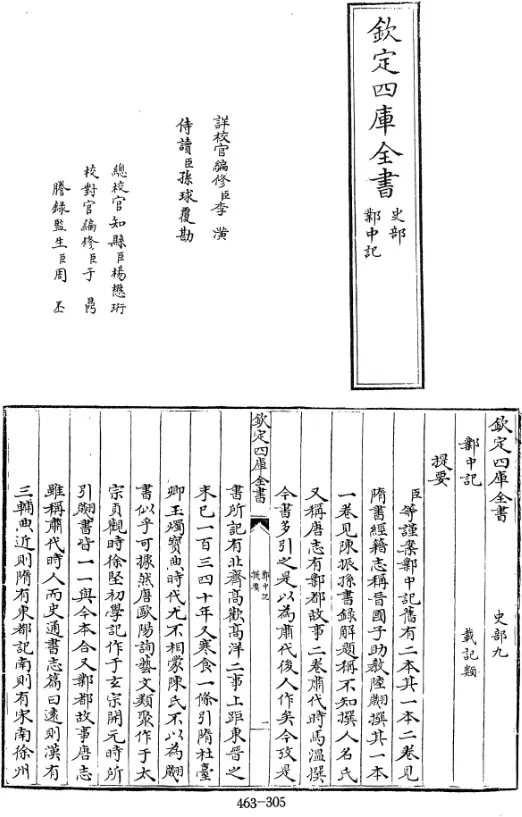 欽定四庫全書
史部
鄴中記
詳校官編修臣李潢
侍讀臣孫球覆勘
總校官知縣臣楊懋珩
校對官編修臣于鼎
謄錄監生臣周丕
欽定四庫全書
史部九
鄴中記
載記類
提要
臣等謹案鄴中記舊有二本其一本二卷見
隋書經籍志稱晉國子助教陸翽撰其一本
一卷見陳振孫書録解題稱不知撰人名氏
又稱唐志有鄴都故事二卷肅代時馬溫撰
今書多引之是以為肅代後人作矣今攷是
欽定四庫全書
鄴中記
提要
一
書所記有北齊高歡高洋二事上距東晉之
末已一百三四十年又寒食一條引隋杜臺
卿玉燭寶典時代尤不相蒙陳氏不以為翽
書似乎可據然唐歐陽詢藝文類聚作于太
宗貞觀時徐堅初學記作于玄宗開元時所
引翽書皆一一與今本合又鄴都故事唐志
雖稱肅代時人而史通書志篇曰遠則漢有
三輔典近則隋有東都記南則有宋南徐州
463-305